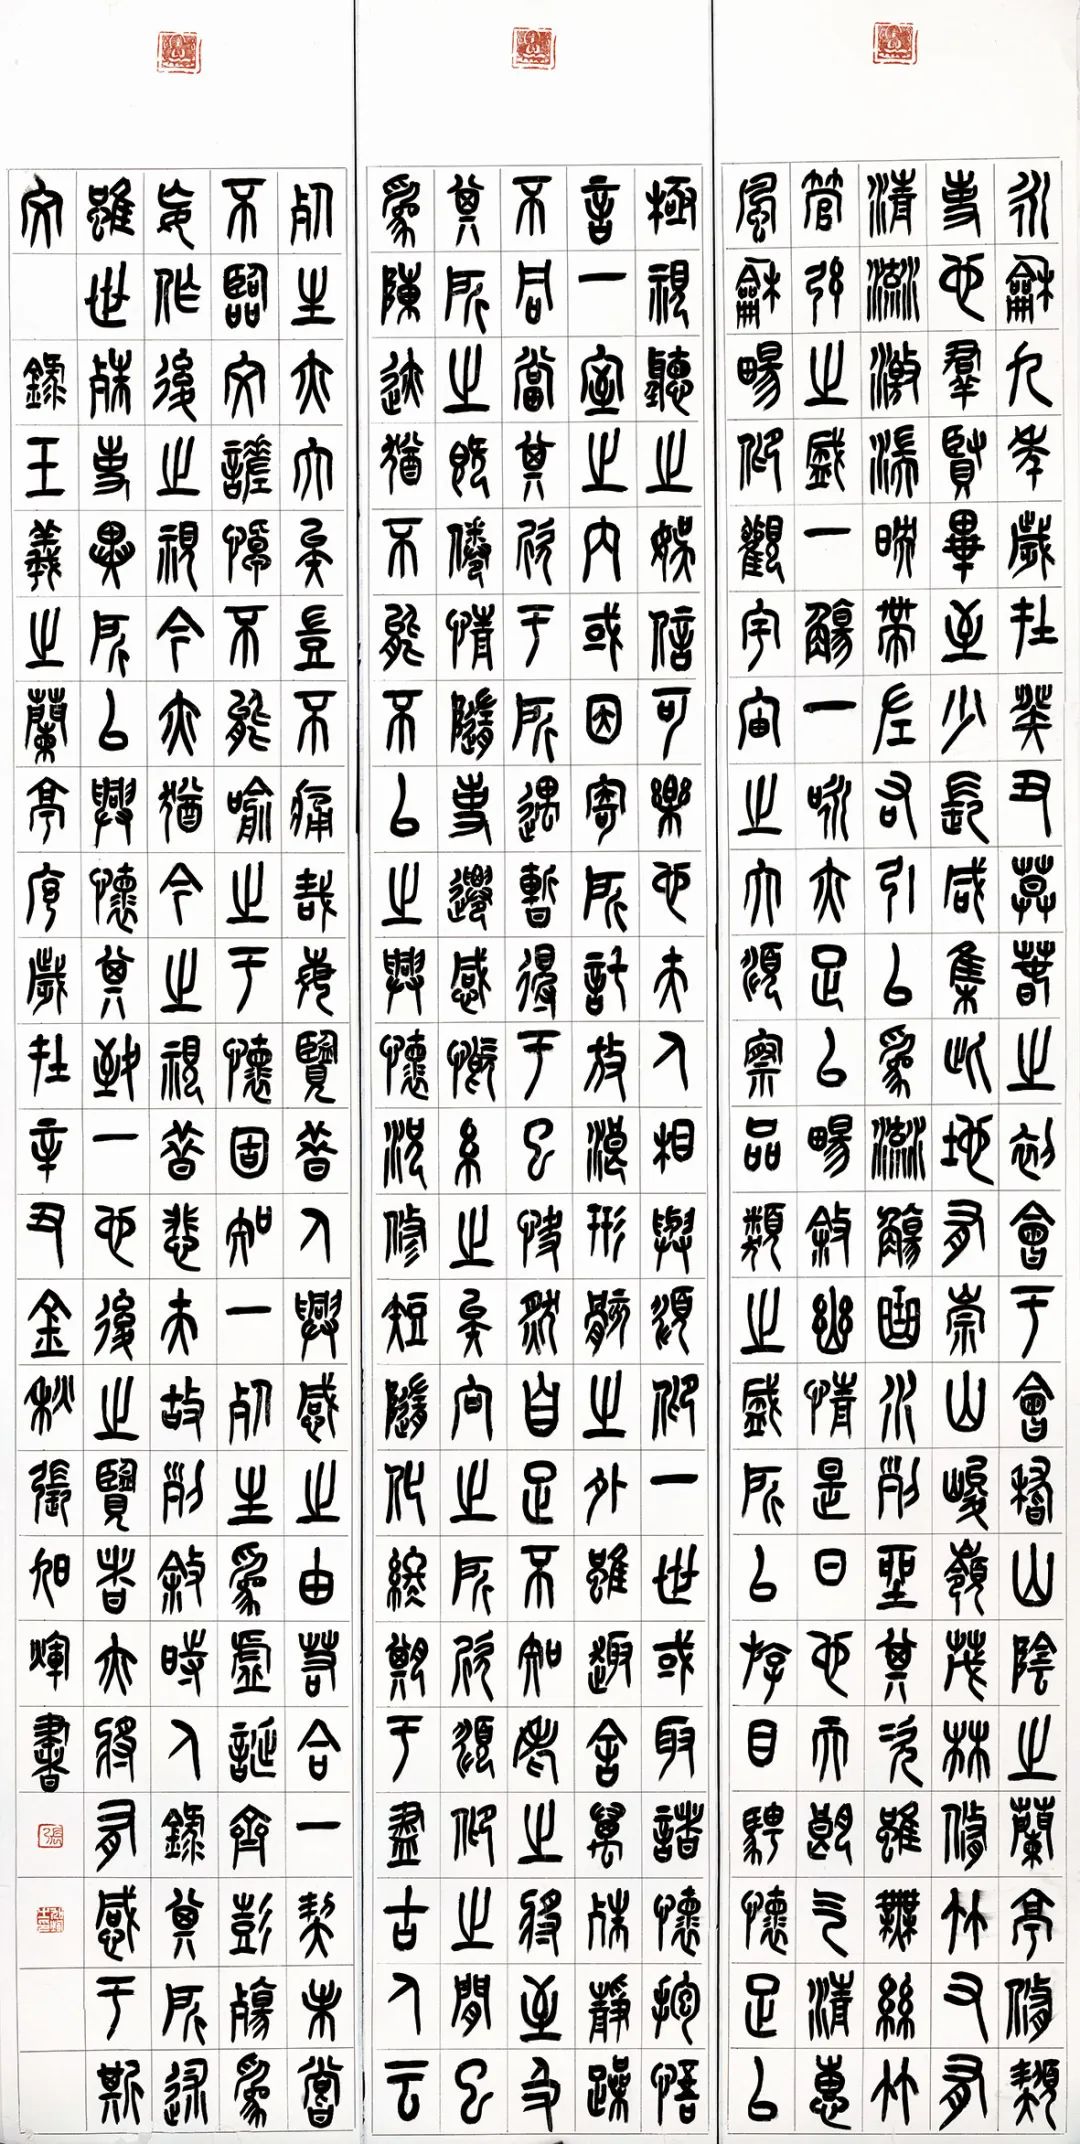 永和九年歲在癸丑暮春之初會于會稽山陰之蘭亭脩禊
事也羣賢畢至少長咸集此地有崇山峻嶺茂林脩竹又有
清流激湍映帶左右引以為流觴曲水列坐其次雖無絲竹
管弦之盛一觴一詠亦足以暢敘幽情是日也天朗氣清惠
風和暢仰觀宇宙之大俯察品類之盛所以遊目騁懷足以
極視聽之娛信可樂也夫人相與俯仰一世或取諸懷抱悟
言一室之內或因寄所託放浪形骸之外雖趣舍萬殊靜躁
不同當其欣于所遇暫得于己快然自足不知老之將至及
其所之既倦情隨事遷感慨係之矣向之所欣俯仰之間已
為陳迹猶不能不以之興懷況修短隨化終期于盡古人云
死生亦大矣豈不痛哉每覽昔人興感之由若合一契未嘗
不臨文嗟悼不能喻之于懷固知一死生為虛誕齊彭殤為
妄作後之視今亦猶今之視昔悲夫故列敘時人錄其所述
雖世殊事異所以興懷其致一也後之覽者亦將有感于斯
文 錄王羲之蘭亭序歲在辛丑金秋張旭煇書